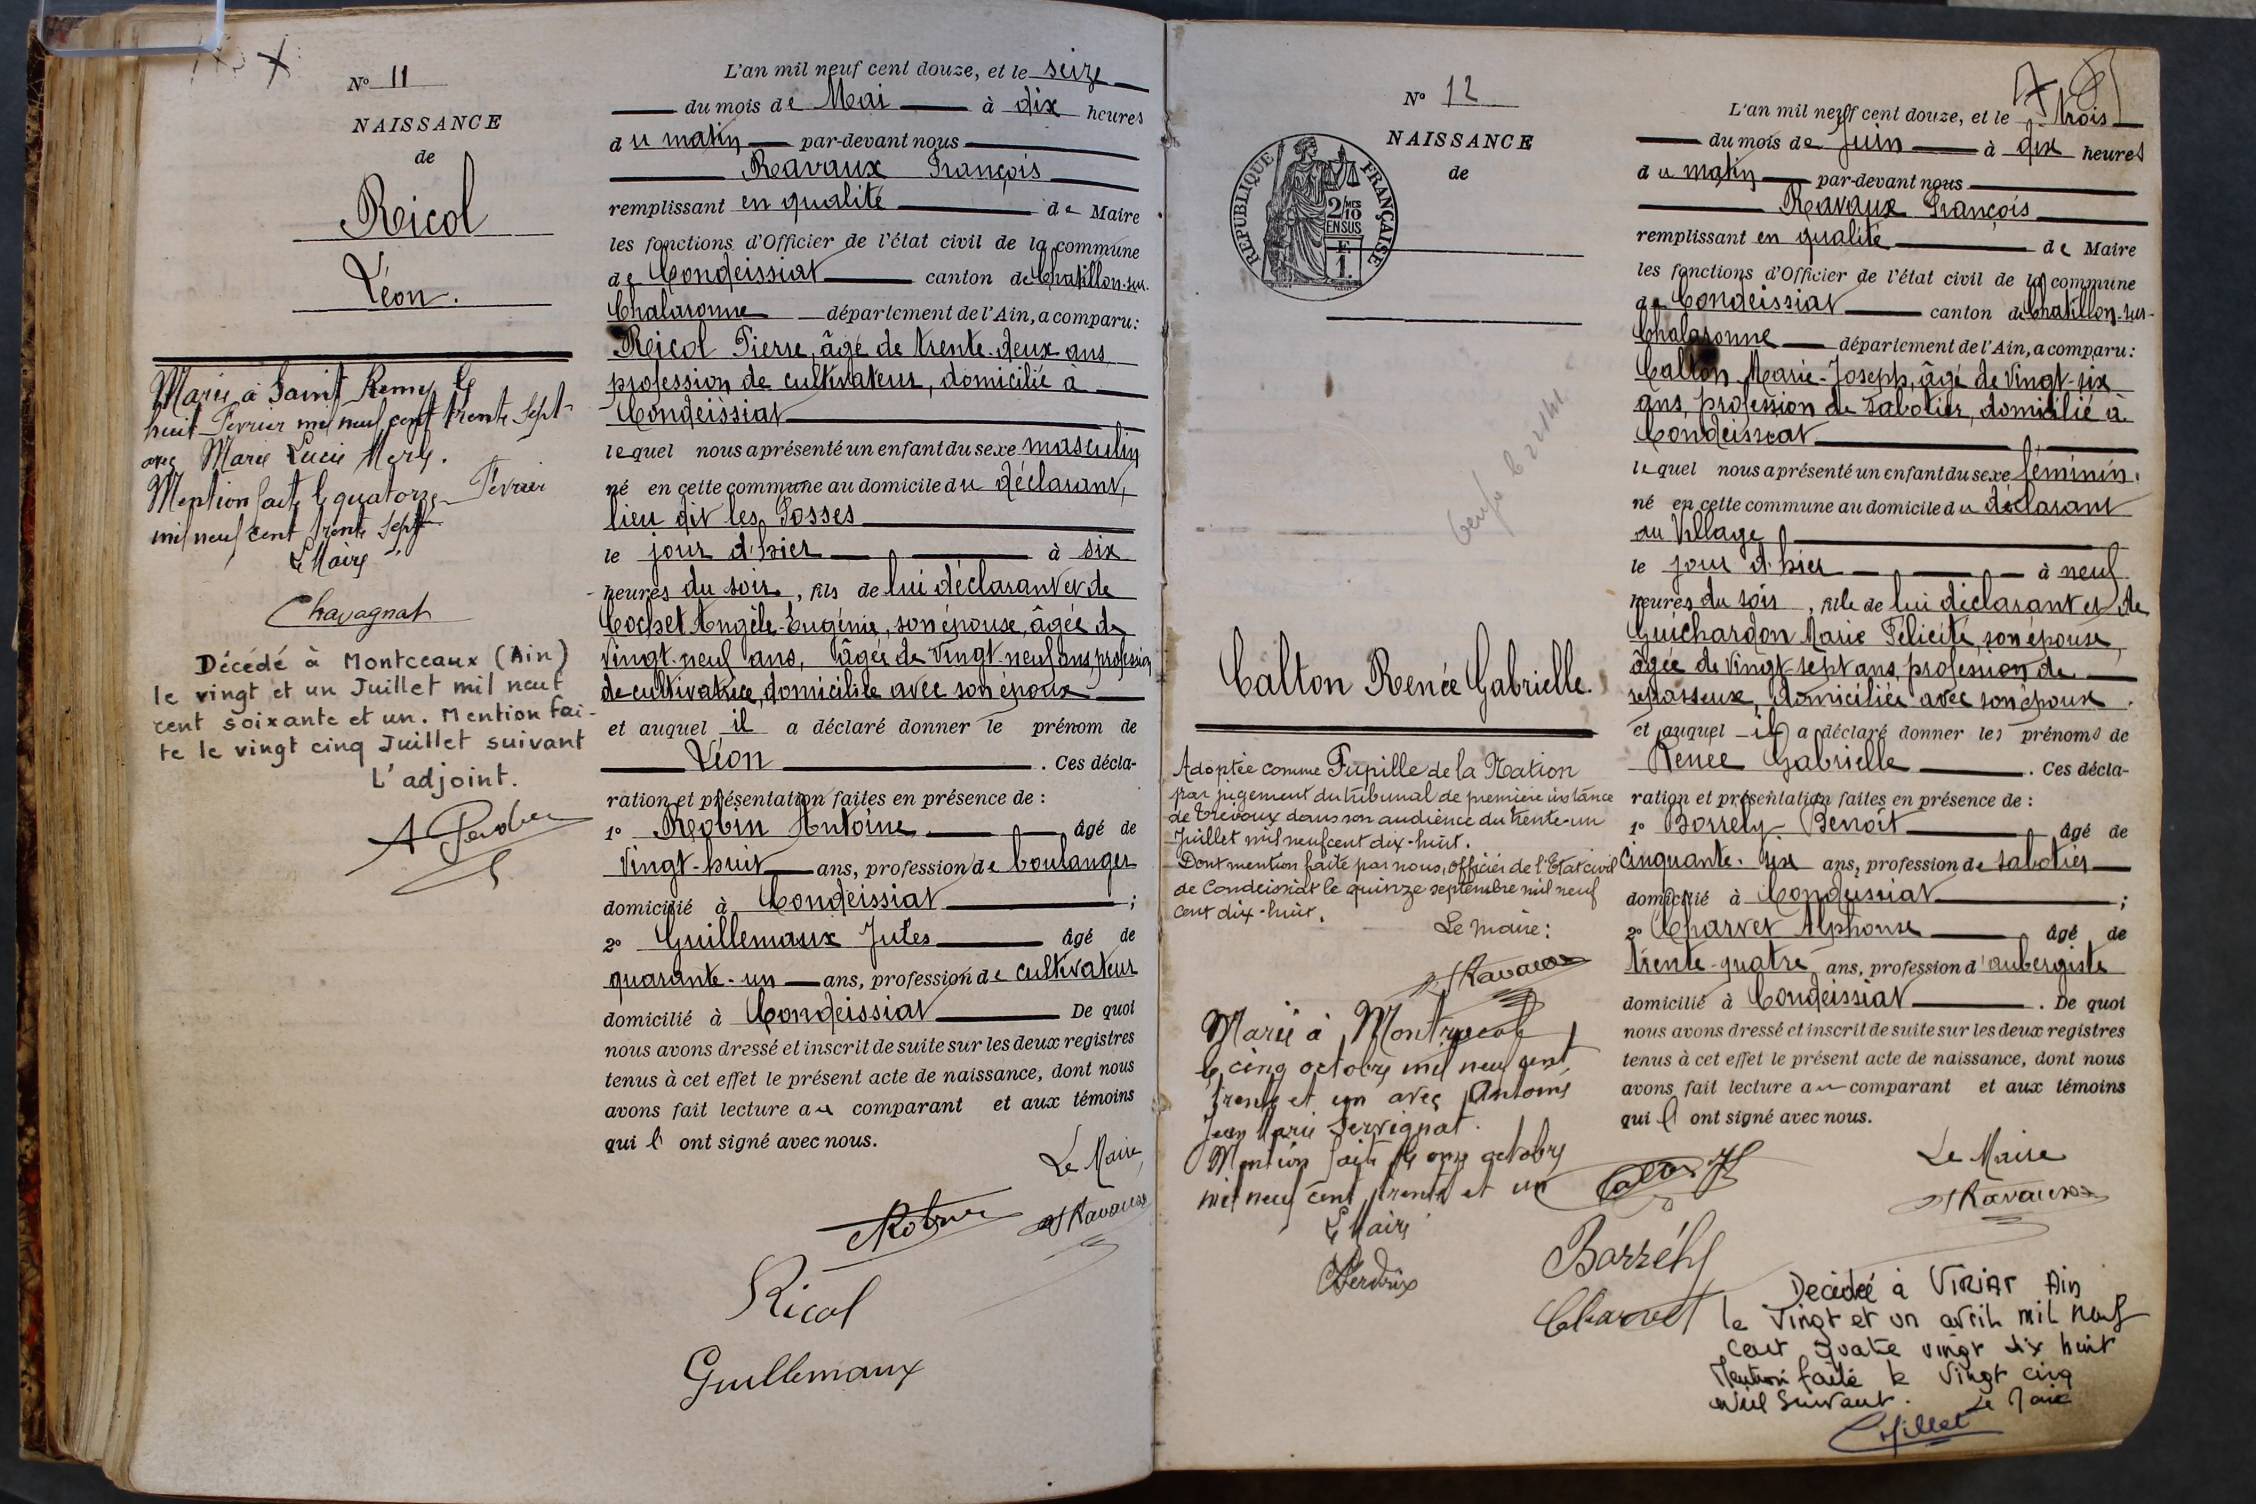 N° 11
NAISSANCE
de
Ricol
Léon.
Marié à Saint Remy le
huit Février mil neuf cent trente sept
avec Marie Lucie Merle.
Mention faite le quatorze Février
mil neuf cent trente sept
Le Maire
Chavagnat
Décédé à Montceaux (Ain)
le vingt et un Juillet mil neuf
cent soixante et un. Mention fai-
te le vingt cinq Juillet suivant
L'adjoint.
L'an mil neuf cent douze, et le seize
du mois de Mai à dix heures
du matin par-devant nous
Ravaux François
remplissant en qualité de Maire
les fonctions d'Officier de l'état civil de la commune
de Condeissiat canton de Chatillon-sur-
Chalaronne département de l'Ain, a comparu:
Ricol Pierre, âgé de trente-deux ans
profession de cultivateur, domicilié à
Condeissiat
lequel nous a présenté un enfant du sexe masculin
né en cette commune au domicile du déclarant,
lieu dit les Fosses
le jour d'hier à six
heures du soir, fils de lui déclarant et de
Cochet Angèle-Eugénie, son épouse, âgée de
vingt-neuf ans, âgée de vingt-neuf ans profession
de cultivatrice, domiciliée avec son époux
et auquel il a déclaré donner le prénom de
Léon. Ces décla-
ration et présentation faites en présence de :
1° Robin Antoine âgé de
vingt-huit ans, profession de boulanger
domicilié à Condeissiat ;
2° Guillemaux Jules âgé de
quarante-un ans, profession de cultivateur
domicilié à Condeissiat De quoi
nous avons dressé et inscrit de suite sur les deux registres
tenus à cet effet le présent acte de naissance, dont nous
avons fait lecture au comparant et aux témoins
qui l' ont signé avec nous.
Le Maire,
Robin Ravaux
Ricol
Guillemaux
N° 12
NAISSANCE
de
REPUBLIQUE FRANÇAISE
2/10 MES
EN SUS
Calton Renée Gabrielle.
Adoptée comme Pupille de la Nation
par jugement du tribunal de première instance
de Trévoux dans son audience du trente-un
Juillet mil neuf cent dix-huit.
Dont mention faite par nous, officier de l'Etat civil
de Condeissiat le quinze septembre mil neuf
cent dix-huit.
Le maire:
Ravaux
Marié à Montracol
le cinq octobre mil neuf cent
trente et un avec Antoine
Jean Marie Servignat.
Mention faite le onze octobre
mil neuf cent trente et un
Le Maire
L'an mil neuf cent douze, et le trois
du mois de Juin à dix heures
du matin par-devant nous
Ravaux François
remplissant en qualité de Maire
les fonctions d'Officier de l'état civil de la commune
de Condeissiat canton de Chatillon-sur-
Chalaronne département de l'Ain, a comparu:
Calton Marie-Joseph, âgé de vingt-six
ans, profession de sabotier, domicilié à
Condeissiat
lequel nous a présenté un enfant du sexe féminin.
né en cette commune au domicile du déclarant
au Village
le jour d'hier à neuf
heures du soir, fille de lui déclarant et de
Guichardon Marie Félicité, son épouse,
âgée de vingt-sept ans, profession de
repasseuse, domiciliée avec son époux.
et auquel il a déclaré donner les prénoms de
Renée Gabrielle. Ces décla-
ration et présentation faites en présence de :
1° Benoît âgé de
cinquante-six ans, profession de sabotier
domicilié à Condeissiat ;
2° Charvet Alphonse âgé de
trente-quatre ans, profession d'aubergiste
domicilié à Condeissiat. De quoi
nous avons dressé et inscrit de suite sur les deux registres
tenus à cet effet le présent acte de naissance, dont nous
avons fait lecture au comparant et aux témoins
qui l' ont signé avec nous.
Le Maire
Ravaux
Charvet
Décédée à VIRIAT Ain
le vingt et un avril mil neuf
cent quatre vingt dix huit
Mention faite le vingt cinq
avril suivant.
Le Maire